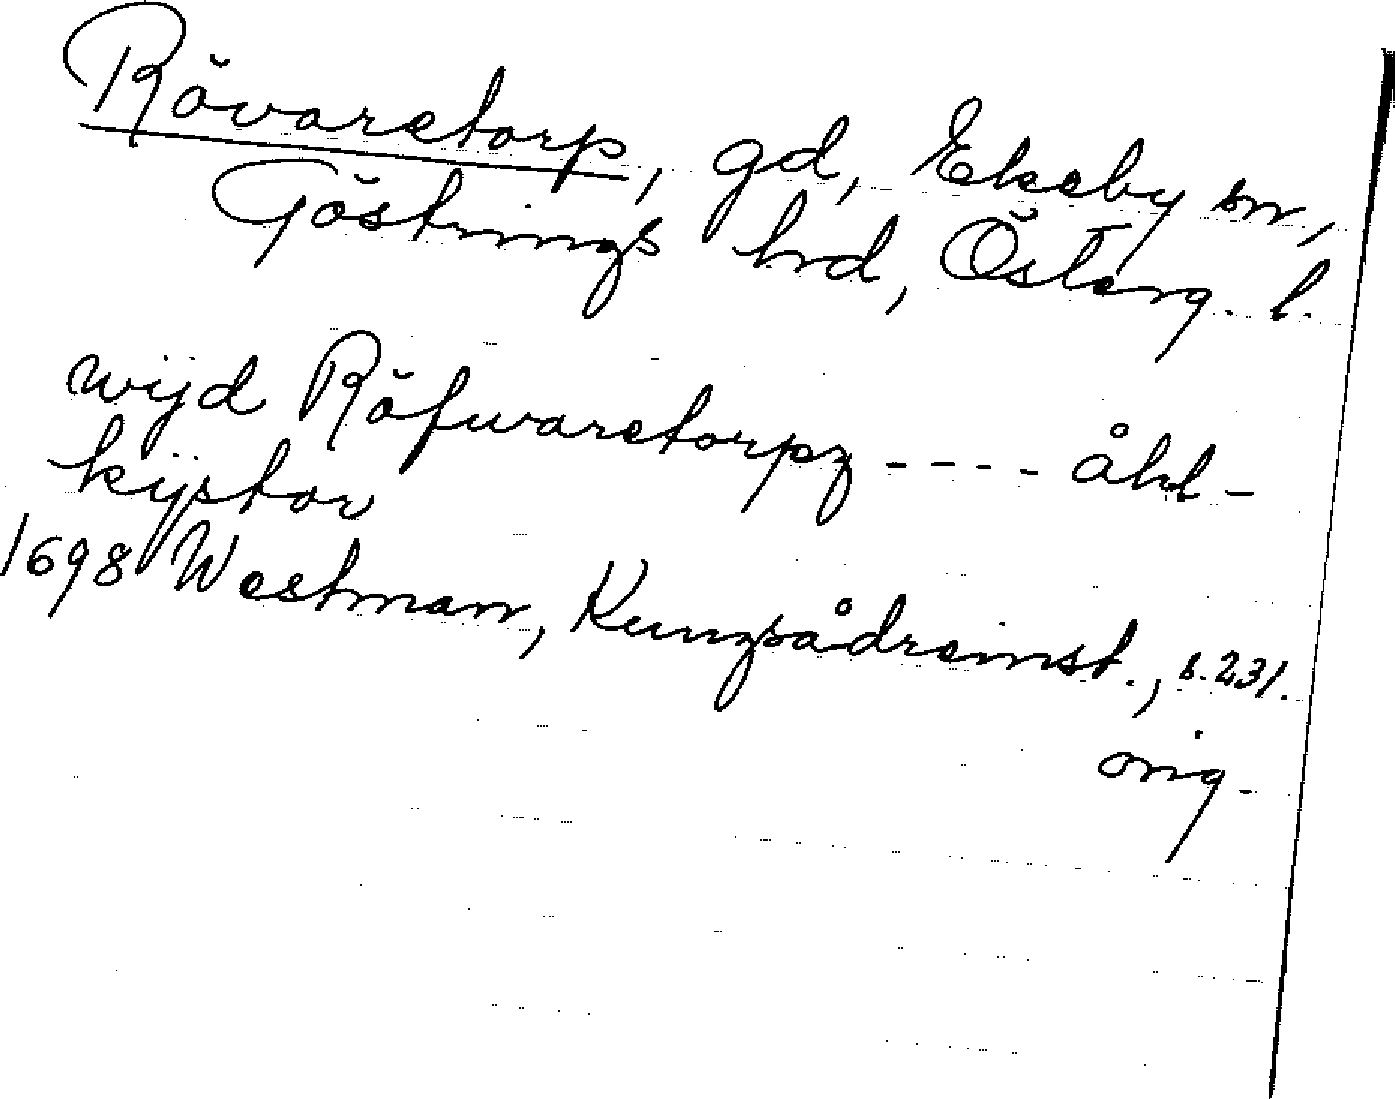 Rövaretorp, gd, Ekeby sn,
Göstrings hrd, Österg. l.
wijd Röfwaretorpz - - - - åhl-
kijstor
1698 Westman, Kungsådreinst., s. 231.
orig.